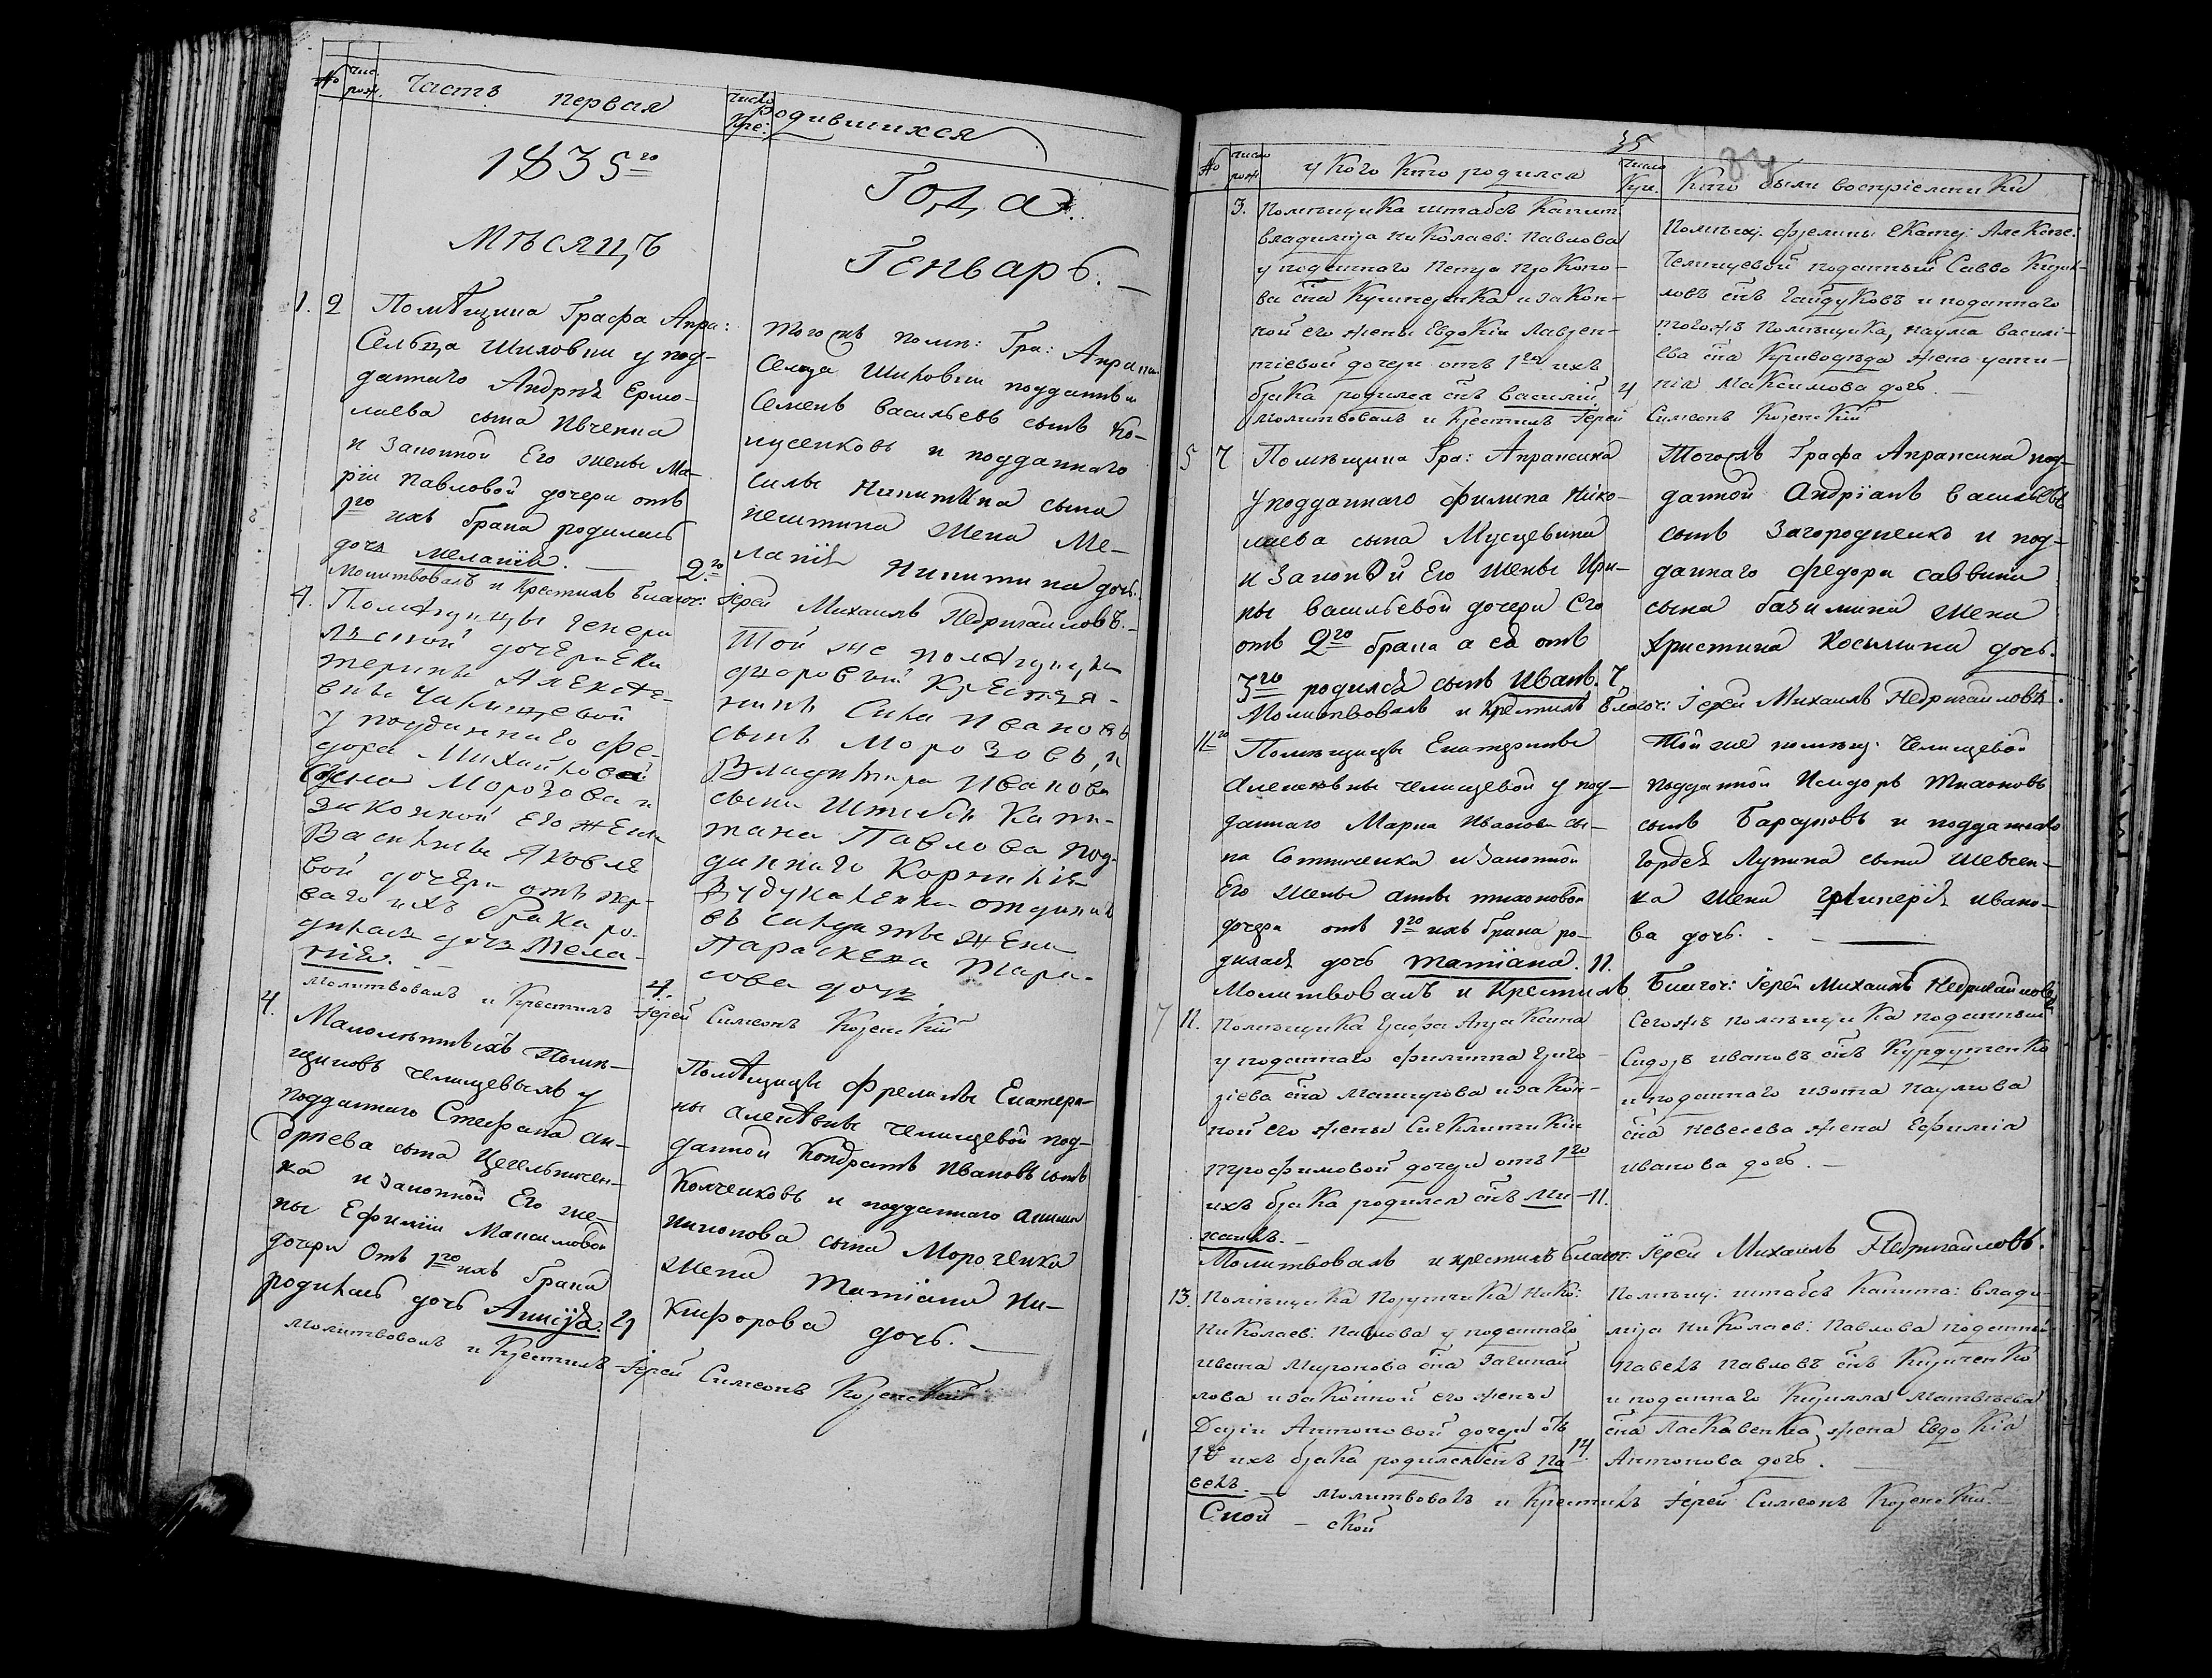 № чис. рож. Часть первая число Кре: Родившихся
1835го Года
Мѣсяцъ Генварь.
1. 2 Помѣщика Графа Апра:
Сельца Шиховки у под-
даннаго Андрея Ермо-
лаева сына Ивченка
и Законной Его жены Ма-
ріи Павловой дочери отъ
1го ихъ брака родилась
дочь Меланія. — 2го
того жъ помѣ: Гра: Апракси
Селца Шиховки подданны
Семенъ Васильевъ сынъ Ко-
и подданнаго
Силы Никитина сына
жена Ме-
ланія Никитина дочь.
Молитвовалъ и Крестилъ Благоч: Іерей Михаилъ Недригайловъ.
4. Помѣщицы Генера
льской дочери Ека
терины Алексѣе-
вны Челищевой
у подданнаго Фе-
дора Михайлова
Сына Морозова и
законной Его Жены
Василисы Яковле
вой дочери отъ пер-
ваго ихъ брака ро-
дилась дочь Мела-
нія. — 4.
Той же помѣщицы
дворовый Крестья-
нинъ Сила Ивановъ
сынъ Морозовъ, и
Владимира Иванова
сына Штабсъ Капи-
тана Павлова под-
даннаго Корнилія
жена
Параскева Тара-
сова дочь
Молитвовалъ и Крестилъ Іерей Симеонъ Коренскій
4. Малолѣтныхъ Помѣ-
щиковъ Челищевыхъ у
подданнаго Стефана Ан-
дрѣева сына Цегельничен-
ка и Законной Его же-
ны Ефиміи Максимовой
дочери Отъ 1го ихъ брака
родилась дочь Анисія. 4
Помѣщицы Фрелины Екатери-
ны Алексѣвны Челищевой под-
данной Кондратъ Ивановъ сынъ
Колченковъ и подданнаго
сына Мороченка
жена Татіана Ни-
кифорова дочь. —
Молитвовалъ и Крестилъ Іерей Симеонъ Коренскій
35
84
№ число рож у Кого Кто родился Число Кре. Кто были воспріемники
3. Помѣщика штабсъ Капит:
Владиміра Николаев: Павлова
у поданнаго Петра Проко-
ва сна и закон-
ной его жены Евдокіи Лаврен-
тіевой дочери отъ 1го ихъ
брака родился снъ Василій 4
Помѣщ: фрелины Екатер: Алексѣе:
Челищевой поданный Савва Кирил-
ловъ снъ Гайдуковъ и поданнаго
тогожъ Помѣщика, Наума Василі-
ева сна жена Усти-
нія Максимова дочь. —
Молитвовалъ и Крестилъ Іерей Симеонъ Коренскій
5 7 Помѣщика Гра: Апраксина
У подданнаго Филипа Нико-
лаева сына
и Законной Его жены Ири-
ны Васильевой дочери Его
отъ 2го брака а ея отъ
3го родился сынъ Иванъ. 7
Тогожъ Графа Апраксина под-
данной Андріанъ Васильевъ
сынъ Загородненко и под-
даннаго Федора Саввина
сына жена
Христина Косьмина дочь.
Молитвовалъ и Крестилъ Благоч: Іерей Михаилъ Недригайловъ.
11го Помѣщицы Екатерины
Алексѣевны Челищевой у под-
даннаго Марка Иванова сы-
на Сотниченка и Законной
Его жены Анны Тихоновой
дочери отъ 1го ихъ брака ро-
дилась дочь Татіана. 11.
Той же помѣщ: Челищевой
подданной Исидоръ Тихоновъ
сынъ Барсуковъ и подданнаго
Гордея Лупина сына Шевсен-
ка жена Гликерія Ивано-
ва дочь. —
Молитвовалъ и Крестилъ Благоч: Іерей Михаилъ Недригайловъ
7 11. Помѣщика Графа Апраксина
у поданнаго Филиппа Григо-
ріева сна и закон-
ной его жены Сигклитикіи
Трофимовой дочери отъ 1го
ихъ брака родился снъ Ми- 11.
хаилъ. —
Сегожъ помѣщика поданный
Сидоръ Ивановъ снъ
и поданнаго Изота Наумова
сна жена Ефимія
Иванова дочь. —
Молитвовалъ и крестилъ Благоч: Іерей Михаилъ Недригайловъ.
13. Помѣщика Порутчика Нико:
Николаев: Павлова у поданнаго
Ивана Миронова сна
и законной его жены
Даріи Антоновой дочери отъ
1го ихъ брака родился снъ Па 14.
велъ. —
Помѣщ: штабсъ Капита: Влади-
міра Николаев: Павлова поданный
Павелъ Павловъ снъ Кириченко
и поданнаго Кирилла Матвѣева
сна Ласкавенка, жена Евдокія
Антонова дочь. —
Молитвовалъ и Крестилъ Іерей Симеонъ Коренскій